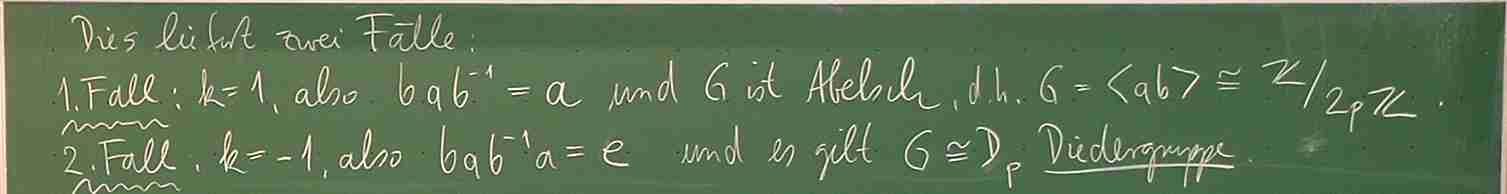 Dies liefert zwei Fälle:
1. Fall: k=1, also bab⁻¹ = a und G ist Abelsch, d.h. G = <ab> ≅ ℤ/2pℤ.
2. Fall: k=-1, also bab⁻¹a = e und es gilt G ≅ D_p Diedergruppe.